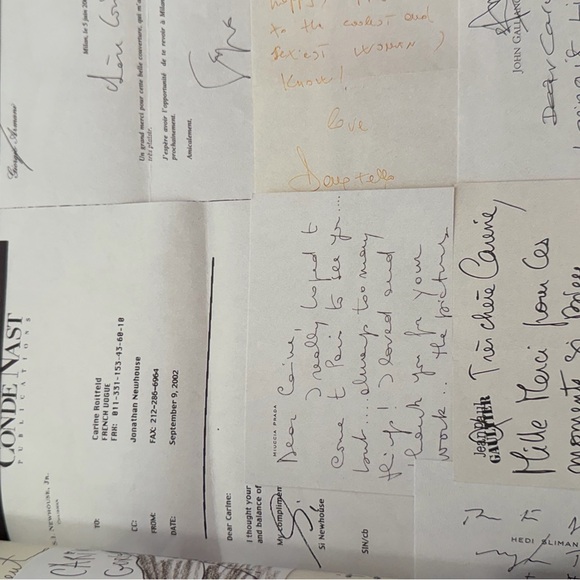 Giorgio Armani
Milan, le 5 juin 200
Chère
Un grand merci pour cette belle couverture, qui m'a
très plaisir.
J'espère avoir l'opportunité de te revoir à Milan
prochainement.
Amicalement.
to the coolest and
sexiest woman I
know!
love
Donatella
JOHN GALLIANO
Dear Carine
CONDÉ NAST
PUBLICATIONS
S.I. NEWHOUSE, JR.
CHAIRMAN
TO:
Carine Roitfeld
FRENCH VOGUE
FAX: 011-331-153-43-60-10
CC:
Jonathan Newhouse
FROM:
FAX: 212-286-6964
DATE:
September 9, 2002
Dear Carine:
I thought your
and balance of
My compliment
Si Newhouse
SIN/cb
MIUCCIA PRADA
Dear Carine,
I really hoped to
come to Paris to see you...
but... always too many
things! I loved and
thank you for your
work... the pictures
Jean Paul
GAULTIER
Très chère Carine,
Mille Merci pour ces
moments si
HEDI SLIMAN